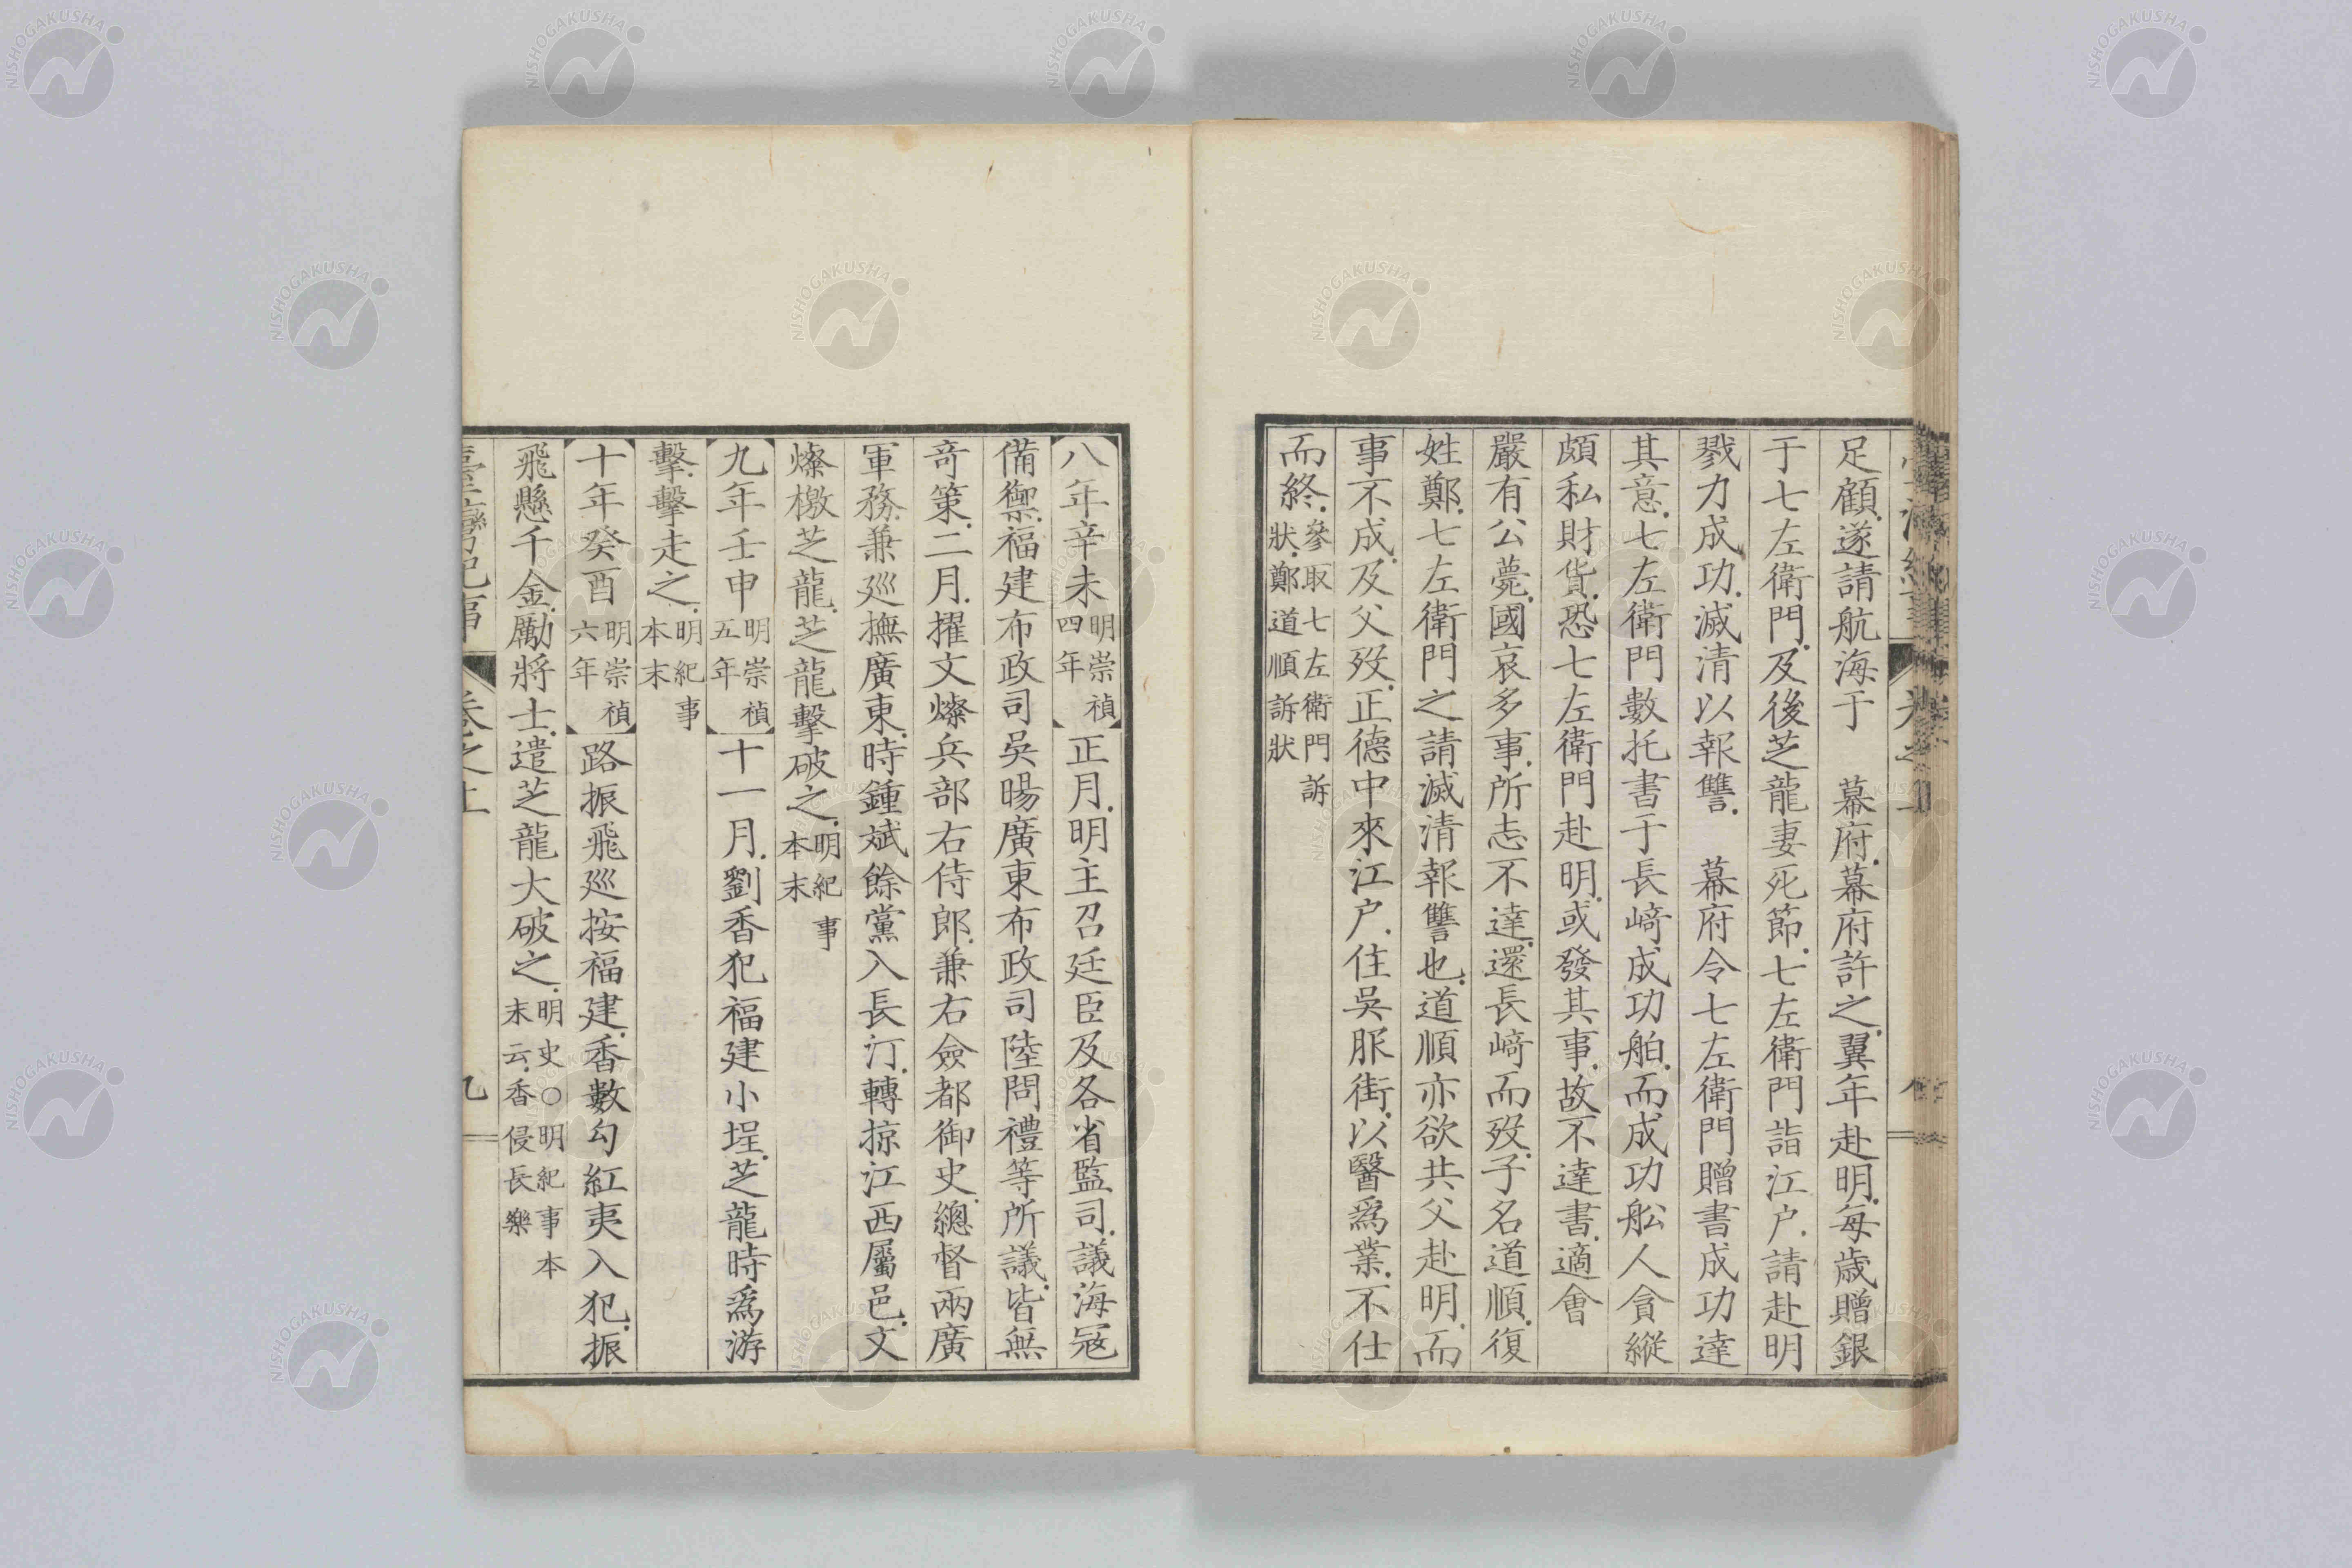 足顧.遂請航海于　幕府.幕府許之.翼年赴明.每歲贈銀
于七左衛門.及後芝龍妻死節.七左衛門詣江戶.請赴明
戮力成功.滅清以報讐.　幕府令七左衛門贈書成功達
其意.七左衛門數托書于長﨑成功舶.而成功舩人貪縱
頗私財貨.恐七左衛門赴明.或發其事.故不達書.適會
嚴有公薨.國哀多事.所志不達.還長﨑而歿.子名道順.復
姓鄭.七左衛門之請滅清報讐也.道順亦欲共父赴明.而
事不成.及父歿.正德中來江戶.住吳服街.以醫爲業.不仕
而終.參取七左衛門訴狀.鄭道順訴狀
八年辛未明崇禎四年正月.明主召廷臣及各省監司.議海寇
備禦.福建布政司吳暘廣東布政司陸問禮等所議.皆無
奇策.二月.擢文燦兵部右侍郎.兼右僉都御史.總督兩廣
軍務.兼巡撫廣東.時鍾斌餘黨入長汀.轉掠江西屬邑.文
燦檄芝龍.芝龍擊破之.明紀事本末
九年壬申明崇禎五年十一月.劉香犯福建小埕.芝龍時爲游
擊.擊走之.明紀事本末
十年癸酉明崇禎六年路振飛巡按福建.香數勾紅夷入犯.振
飛懸千金.勵將士.遣芝龍大破之.明史○明紀事本末云.香侵長樂
臺灣紀事
卷之上
九
NISHOGAKUSHA